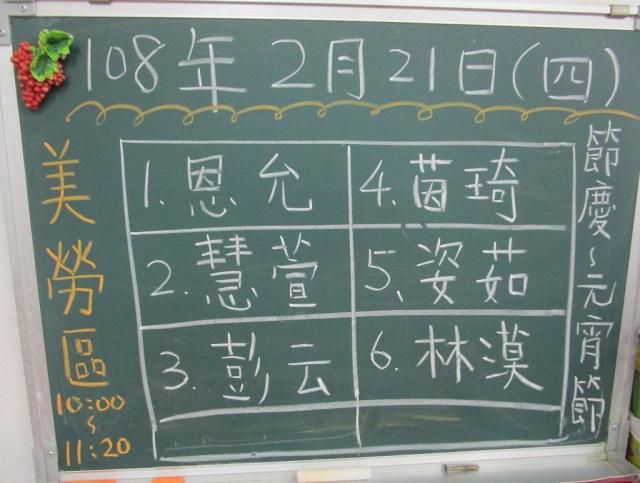 108年2月21日(四)
節慶~元宵節
美勞區
10:00
~
11:20
1.恩允
2.慧萱
3.彭云
4.茵琦
5、姿茹
6.林漠